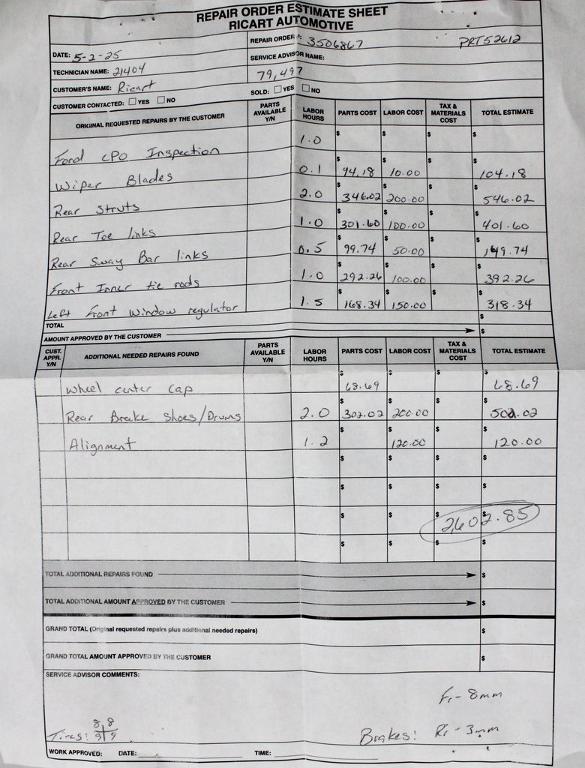 REPAIR ORDER ESTIMATE SHEET
RICART AUTOMOTIVE
DATE: 5-2-25 REPAIR ORDER #: 3506867 PRT52612
TECHNICIAN NAME: 21404 SERVICE ADVISOR NAME:
79,497
CUSTOMER'S NAME: Ricart SOLD: ☐ YES ☐ NO
CUSTOMER CONTACTED: ☐ YES ☐ NO
ORIGINAL REQUESTED REPAIRS BY THE CUSTOMER PARTS AVAILABLE Y/N LABOR HOURS PARTS COST LABOR COST TAX & MATERIALS COST TOTAL ESTIMATE
Ford CPO Inspection 1.0 $ $ $
Wiper Blades 0.1 $ 94.18 10.00 $ 104.18
Rear Struts 2.0 $ 346.02 200.00 $ 546.02
Rear Toe links 1.0 $ 301.60 100.00 $ 401.60
Rear Sway Bar links 0.5 $ 99.74 50.00 $ 149.74
Front Inner tie rods 1.0 $ 292.26 100.00 $ 392.26
Left Front Window regulator 1.5 $ 168.34 150.00 $ 318.34
TOTAL $
AMOUNT APPROVED BY THE CUSTOMER $
CUST. APPR. Y/N ADDITIONAL NEEDED REPAIRS FOUND PARTS AVAILABLE Y/N LABOR HOURS PARTS COST LABOR COST TAX & MATERIALS COST TOTAL ESTIMATE
Wheel center cap $ 68.69 $ 68.69
Rear Brake Shoes/Drums 2.0 $ 302.02 200.00 $ 502.02
Alignment 1.2 $ 120.00 $ 120.00
$ $ $ $
$ $ $ $
$ $ $ 2,602.85
$ $ $ $
TOTAL ADDITIONAL REPAIRS FOUND $
TOTAL ADDITIONAL AMOUNT APPROVED BY THE CUSTOMER $
GRAND TOTAL (Original requested repairs plus additional needed repairs) $
GRAND TOTAL AMOUNT APPROVED BY THE CUSTOMER $
SERVICE ADVISOR COMMENTS:
Fr - 8mm
Tires: 8 8 9 9 Brakes: Rr - 3mm
WORK APPROVED: DATE: TIME: